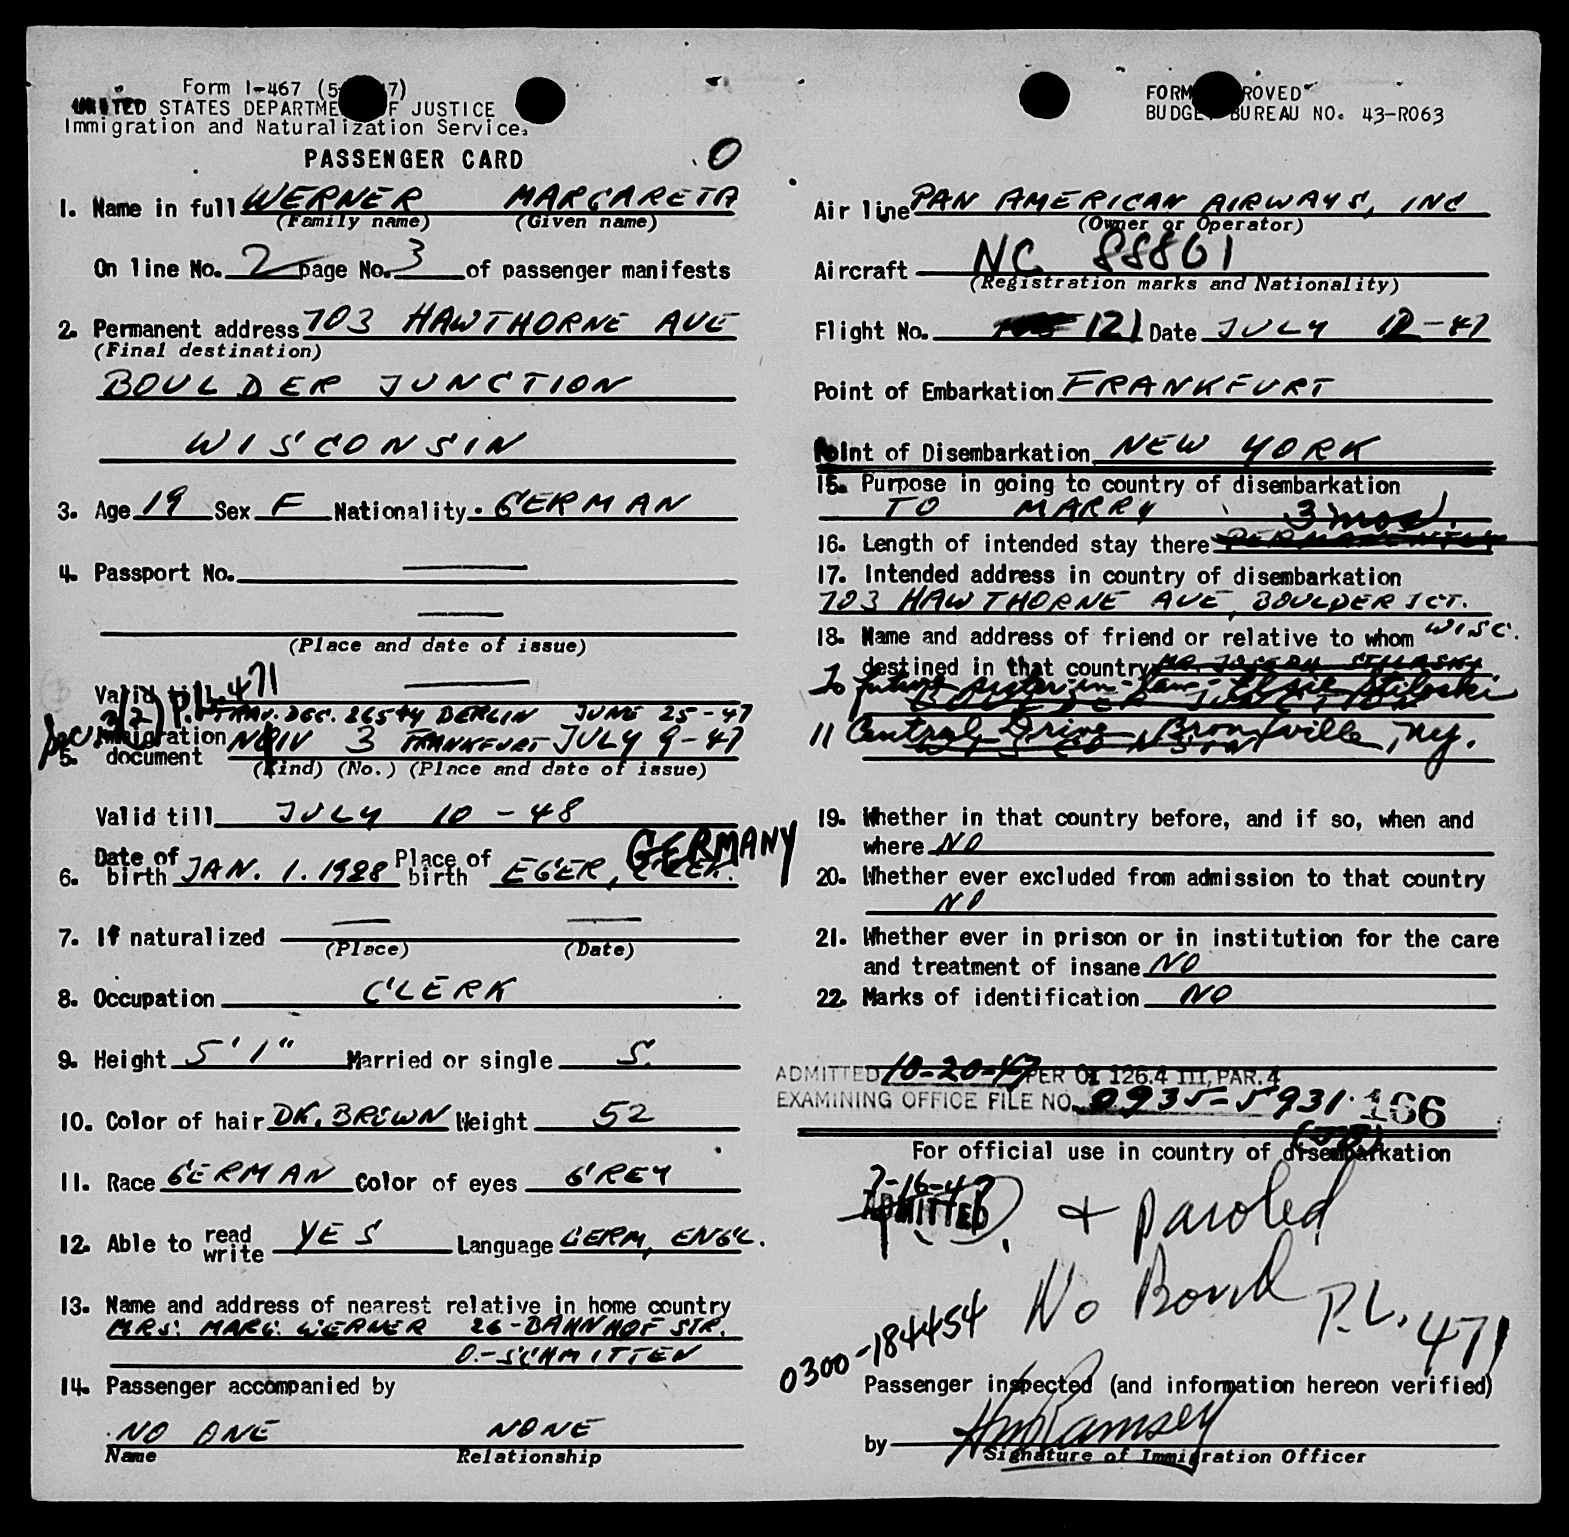 Form I-467 (5- 47)
UNITED STATES DEPARTMENT OF JUSTICE
Immigration and Naturalization Service.
PASSENGER CARD
O
1. Name in full WERNER MARGARETA
(Family name) (Given name)
On line No. 2 page No. 3 of passenger manifests
2. Permanent address 703 HAWTHORNE AVE
(Final destination)
BOULDER JUNCTION
WISCONSIN
3. Age 19 Sex F Nationality GERMAN
4. Passport No.
(Place and date of issue)
Valid till
Sec 3(2) P.L. 471
TRAV. DOC. 26574 BERLIN JUNE 25-47
Immigration NQIV 3 FRANKFURT JULY 9-47
5. document
(Kind) (No.) (Place and date of issue)
Valid till JULY 10-48
6. Date of birth JAN. 1. 1928 Place of birth EGER, GERMANY
7. If naturalized
(Place) (Date)
8. Occupation CLERK
9. Height 5'1" Married or single S.
10. Color of hair DK. BROWN Weight 52
11. Race GERMAN Color of eyes GREY
12. Able to read write YES Language GERM, ENGL.
13. Name and address of nearest relative in home country
MRS. MARG. WERNER 26-BAHNHOF STR.
O.-SCHMITTEN
14. Passenger accompanied by
NO ONE NONE
Name Relationship
FORM APPROVED
BUDGET BUREAU NO. 43-R063
Air line PAN AMERICAN AIRWAYS, INC
(Owner or Operator)
Aircraft NC 88861
(Registration marks and Nationality)
Flight No. 121 Date JULY 12-47
Point of Embarkation FRANKFURT
Point of Disembarkation NEW YORK
15. Purpose in going to country of disembarkation
TO MARRY
3 mos.
16. Length of intended stay there PERMANENTLY
17. Intended address in country of disembarkation
703 HAWTHORNE AVE, BOULDER JCT.
WISC.
18. Name and address of friend or relative to whom
destined in that country MR. JOSEPH STILOSKI
To future sister-in-law: Stiloski
BOULDER JUNCTION
11 Central Drive, Bronxville, N.y.
WISCONSIN
19. Whether in that country before, and if so, when and
where NO
20. Whether ever excluded from admission to that country
NO
21. Whether ever in prison or in institution for the care
and treatment of insane NO
22. Marks of identification NO
ADMITTED 10-20-47 PER OI 126.4 III, PAR. 4
EXAMINING OFFICE FILE NO. 0935-5931. 166
For official use in country of disembarkation
7-16-47
ADMITTED + paroled
No Bond P.L. 471
0300-184454
Passenger inspected (and information hereon verified)
by Ramsey
Signature of Immigration Officer